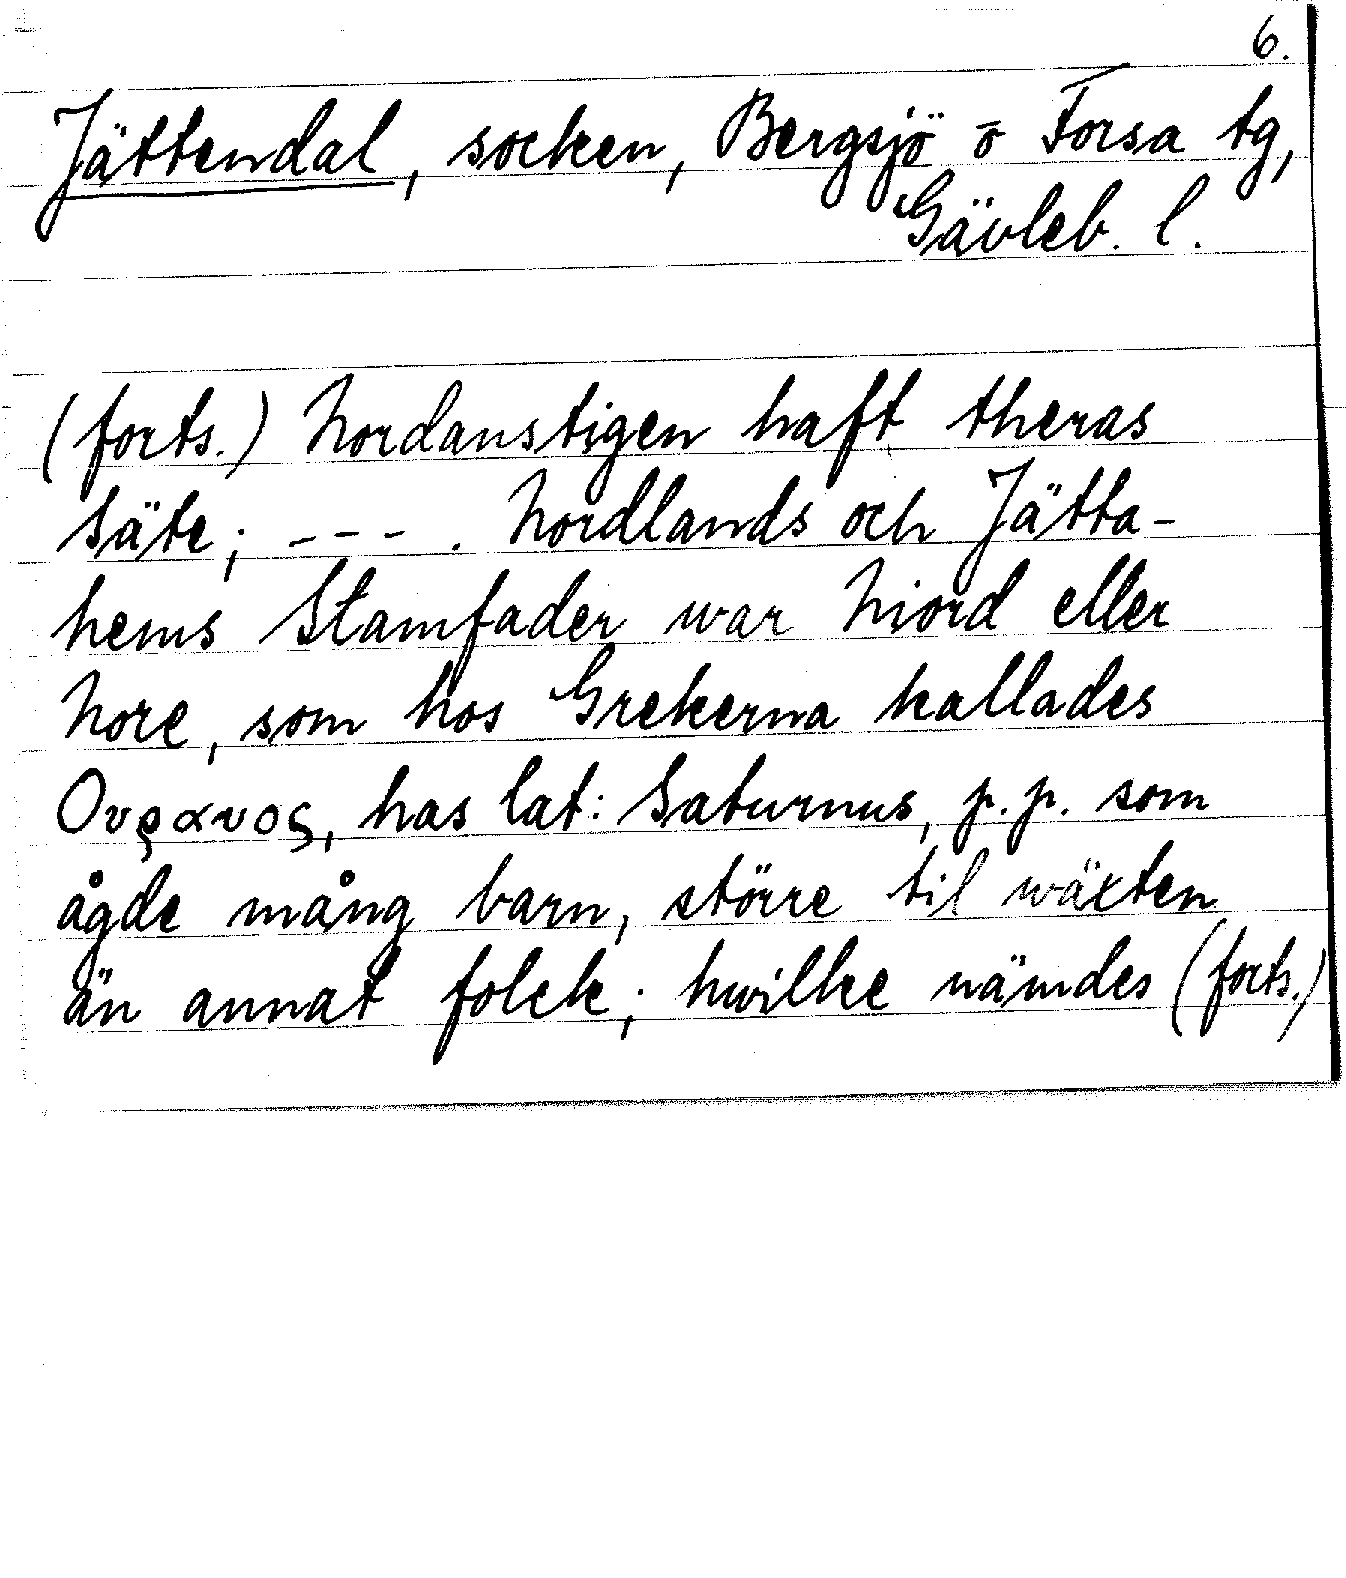 6.
Jättendal, socken, Bergsjö o Forsa tg,
Gävleb. l.
(forts.) Nordanstigen haft theras
Säte; --- . Nordlands och Jätta-
hems Stamfader war Niord eller
Nore, som hos Grekerna kallades
Ουρανος, has lat: Saturnus, p.p. som
ågde mång barn, större til wäxten
än annat folck; hwilke nämdes (forts.)